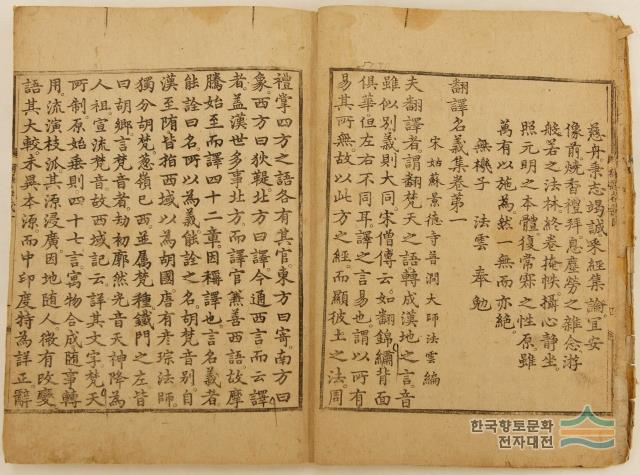 慈舟秉志竭誠采經集論宜安
像前燒香禮拜息塵勞之雜念游
般若之法林終卷掩帙攝心靜坐
照元明之本體復常寂之性原雖
萬有以施為然一無而亦絕。
無機子 法雲 奉勉
翻譯名義集卷第一
宋姑蘇景德寺普潤大師法雲編
夫翻譯者謂翻梵天之語轉成漢地之言音
雖似別義則大同宋僧傳云如翻錦繡背面
俱華但左右不同耳。譯之言易也。謂以所有
易其所無。故以此方之經。而顯彼土之法周
禮掌四方之語各有其官東方曰寄。南方曰
象。西方曰狄鞮。北方曰譯。今通西言而云譯
者。蓋漢世多事北方。而譯官兼善西語。故摩
騰始至而譯四十二章。因稱譯也。言名義者
能詮曰名。所以為義能詮之名。胡梵音別自
漢至隋皆指西域以為胡國。唐有彥琮法師。
獨分胡梵。葱嶺已西並屬梵種。鐵門之左皆
曰胡鄉。言梵音者。劫初廓然。光音天神降為
人祖。宣流梵音。故西域記云。詳其文字。梵天
所制。原始垂則四十七言。寓物合成。隨事轉
用。流演枝派。其源浸廣。因地隨人。微有改變
語其大較。未異本源。而中印度特為詳正。辭
한국향토문화
전자대전